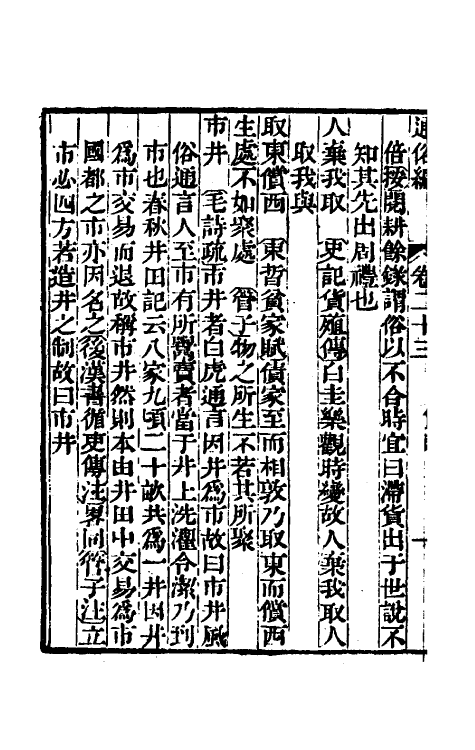 通俗編 卷二十三
倍按閱耕餘錄謂俗以不合時宜曰滯貨出于世說不
知其先出周禮也
人棄我取 史記貨殖傳白圭樂觀時變故人棄我取人
取我與
取東償西 束晳貧家賦債家至而相敦乃取東而償西
生處不如聚處 管子物之所生不若其所聚
市井 毛詩疏市井者白虎通言因井爲市故曰市井風
俗通言人至市有所鬻賣者當于井上洗濯令潔乃到
市也春秋井田記云八家九頃二十畝共爲一井因井
爲市交易而退故稱市井然則本由井田中交易爲市
國都之市亦因名之後漢書循吏傳注畧同管子注立
市必四方若造井之制故曰市井